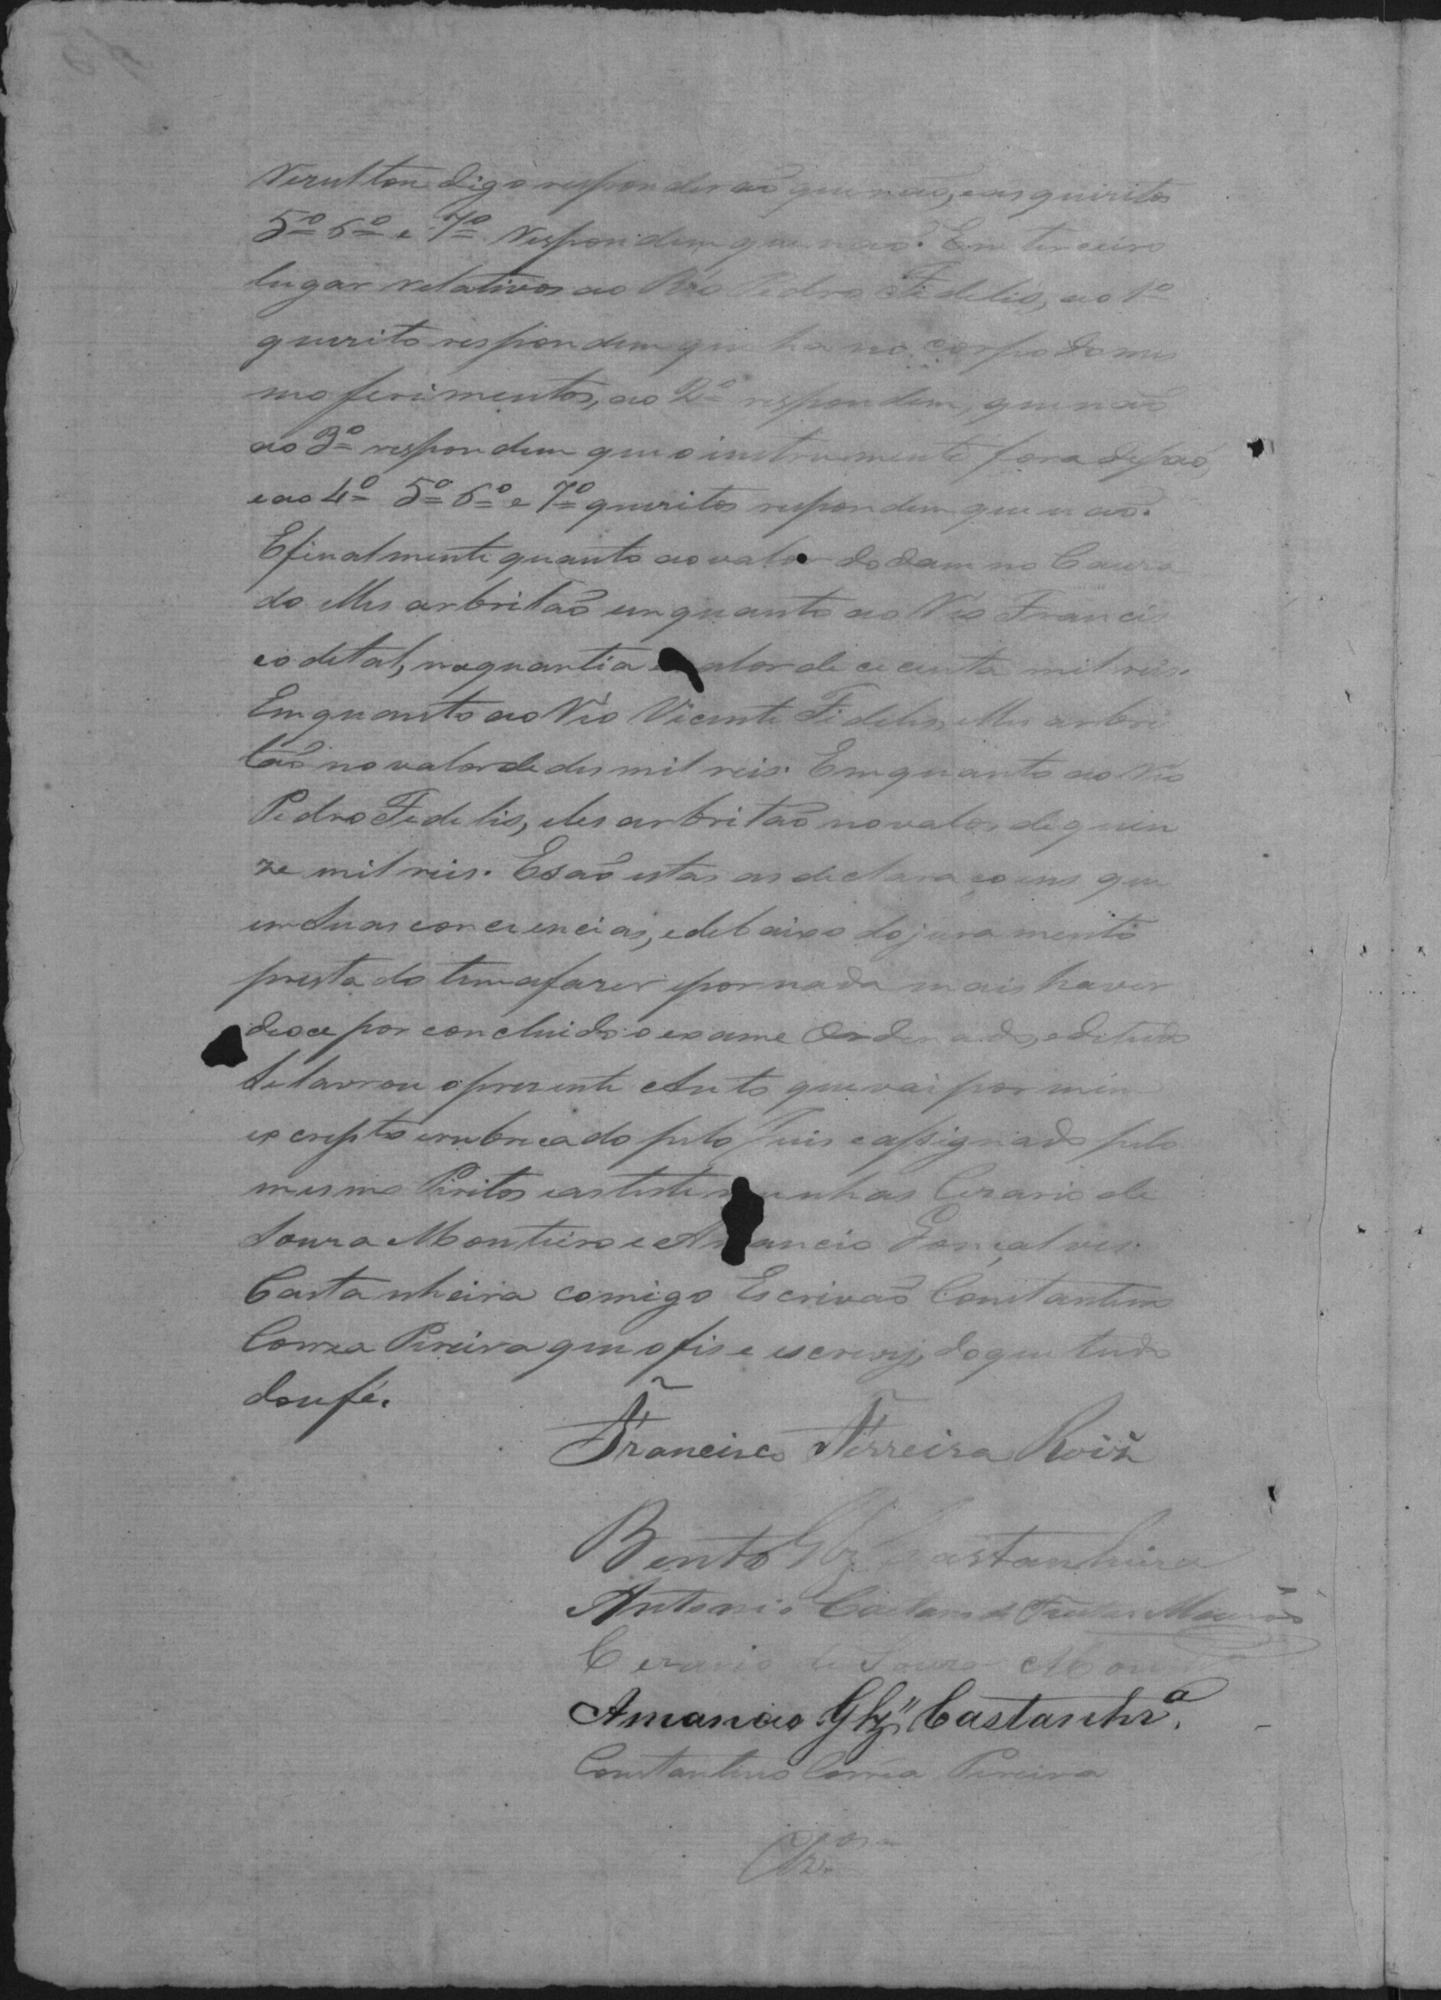 Rezultou digo responderaõ que naõ, e as quizitos
5º 6º e 7º Respondem que naõ. Em terceiro
lugar relativos ao Réo Pedro Fidelis, ao 1º
quezito respondem que ha no corpo do mes
mo ferimentos, ao 2º respondem, que naõ
ao 3º respondem que o instrumento fora de páo,
e ao 4º 5º 6º e 7º quezitos respondem que naõ.
E finalmente quanto ao valor do damno Cauza
do elles arbritaõ enquanto ao Réo Francis
co de tal, na quantia e valor de cecenta mil reis.
Emquanto ao Réo Vicente Fidelis elles arbri
taõ no valor de des mil reis. Emquanto ao Réo
Pedro Fedelis, eles arbritaõ no valor de quin
ze mil reis. E saõ estas as declaraçoens que
em Suas conciencias, e debaixo do juramento
prestado tem afazer e por nada mais haver
deoce por concluido o exame Ordenado, e de tudo
Se lavrou o prezente Auto que vai por mim
escripto e rubricado pelo Juis e assignado pelo
mesmo Piritos e as testemunhas Cezario de
Souza Monteiro e Amancio Gonçalves
Castanheira comigo Escrivaõ Constantino
Correa Pereira que o fis e escrevy, do que tudo
dou fé.
Francisco Ferreira Roiz
Bento Glz Castanheira
Antonio Caetano de Freitas Mouraõ
Cezario de Souza Mont
Amancio Glz Castanhrª.
Constantino Correa Pereira